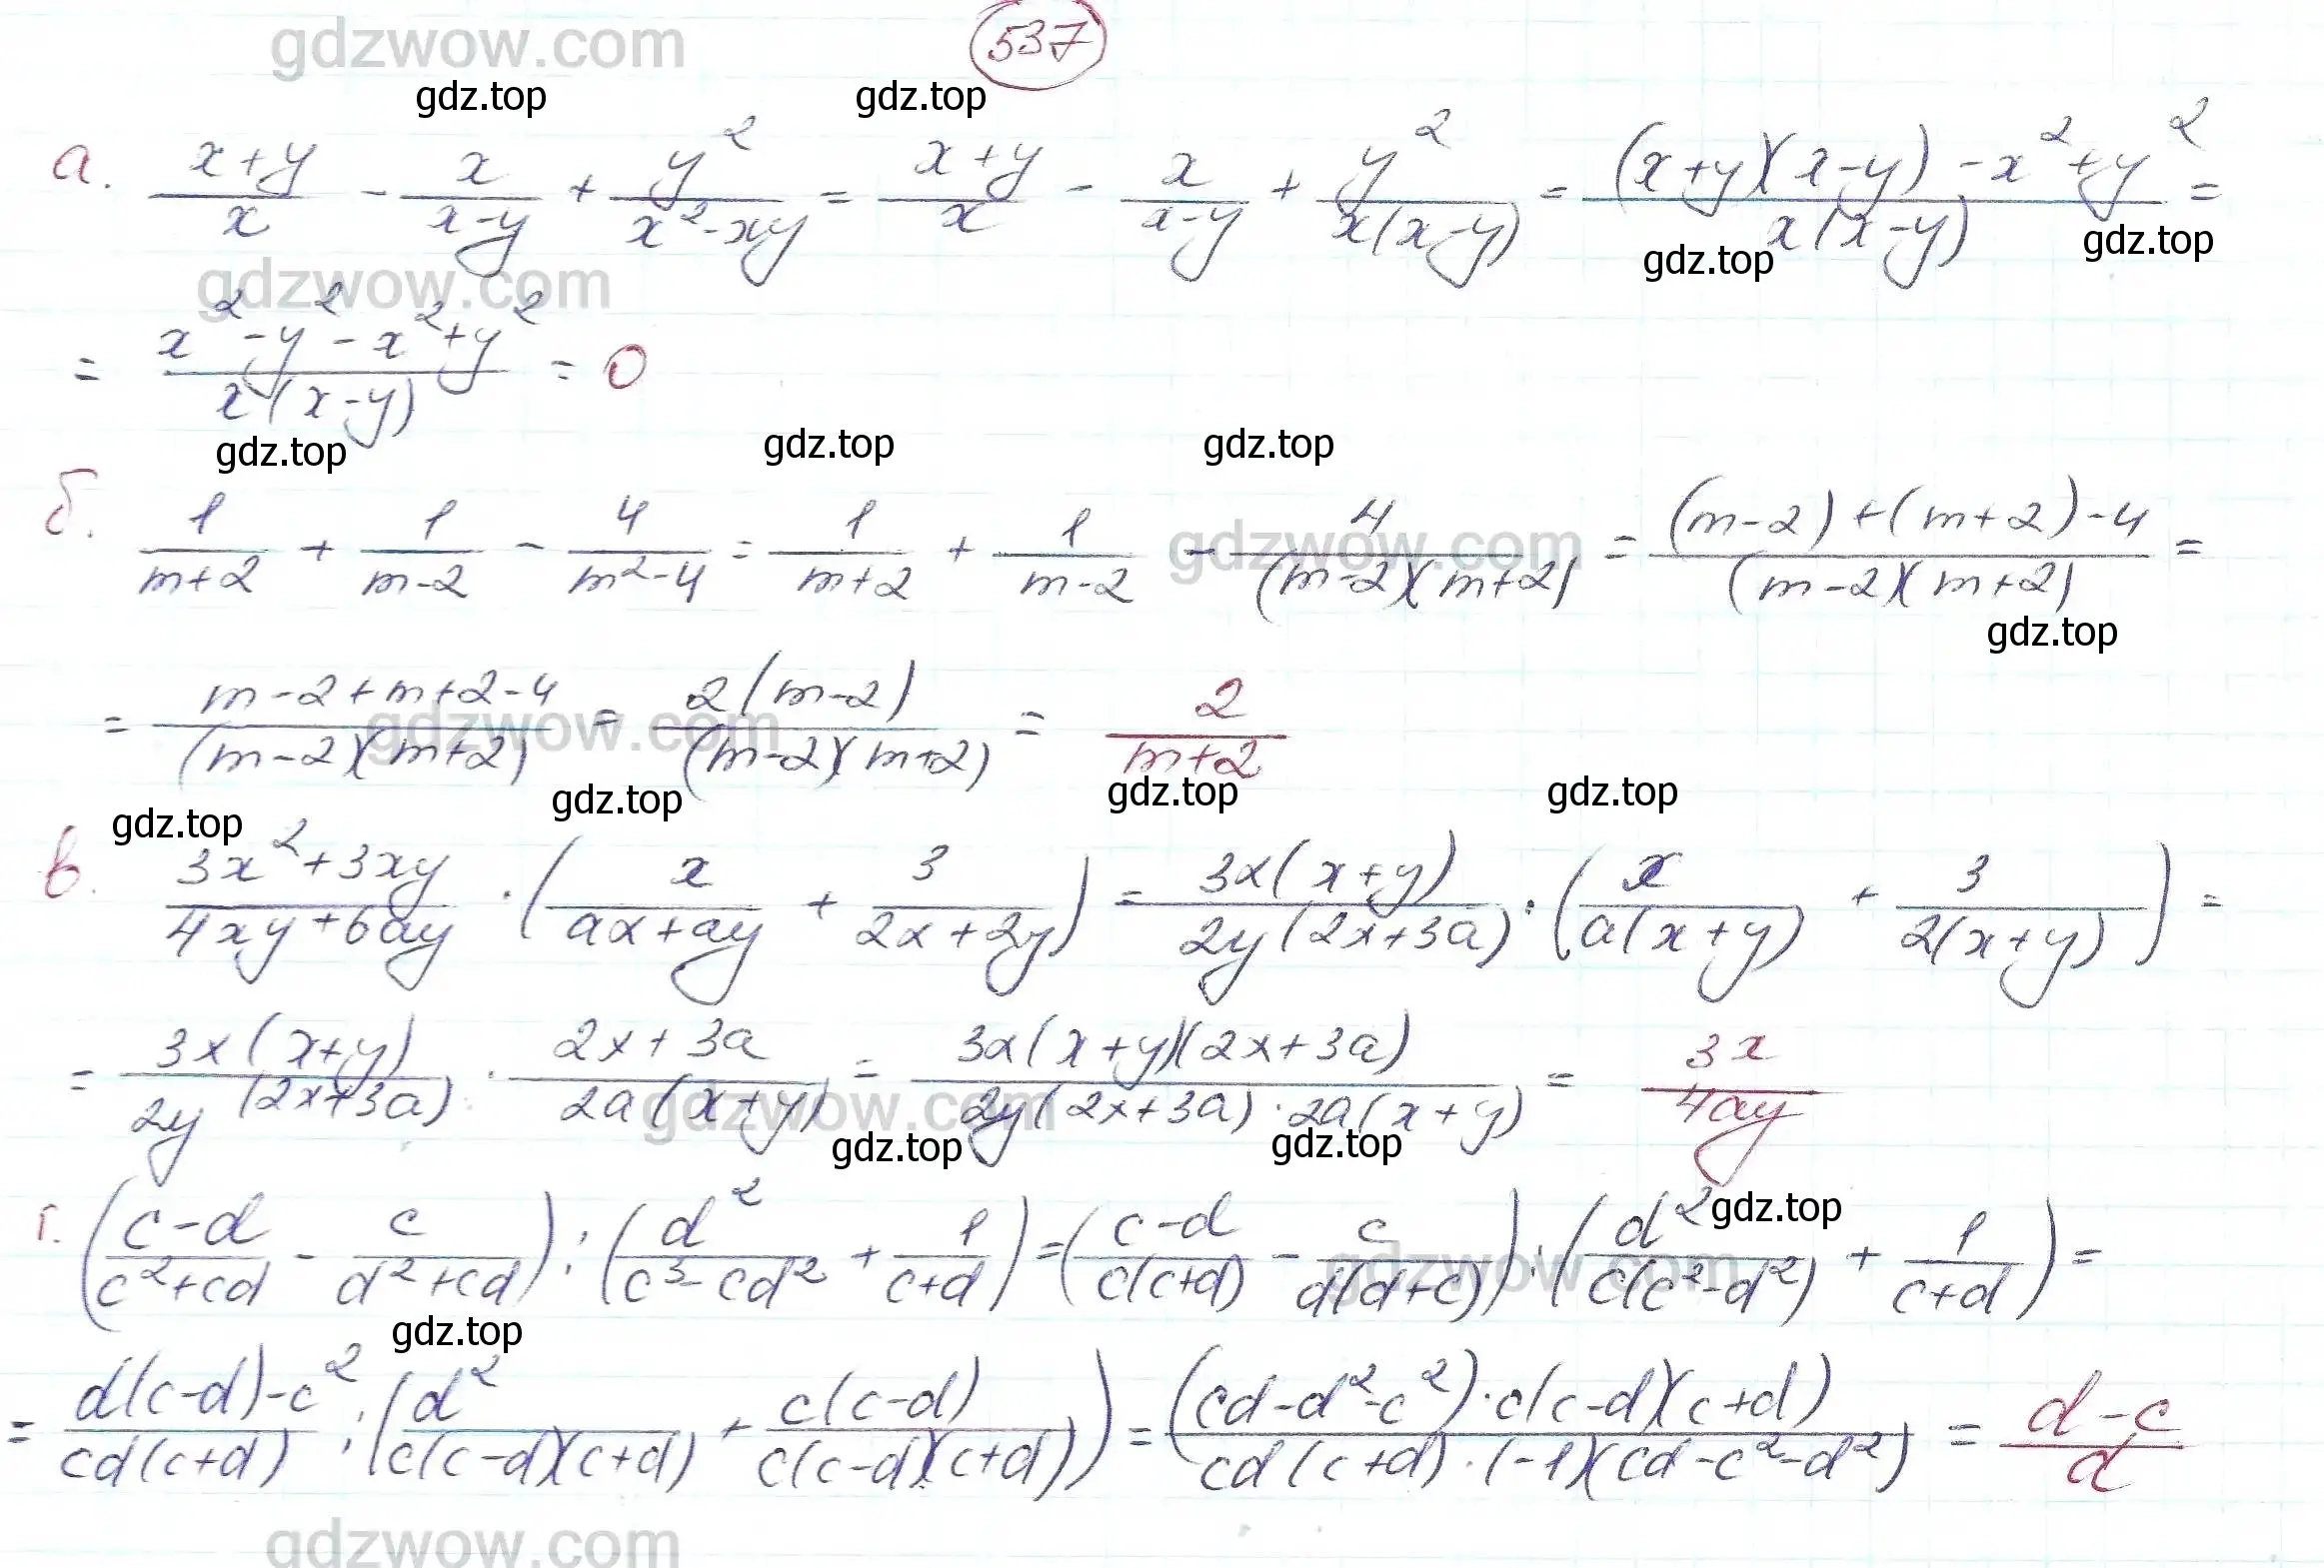 gdzwow.com
537
gdz.top gdz.top
а. (x+y)/x - x/(x-y) + y²/(x²-xy) = (x+y)/x - x/(x-y) + y²/(x(x-y)) = ((x+y)(x-y) - x²+y²)/(x(x-y)) =
gdz.top gdz.top
gdzwow.com
= (x²-y²-x²+y²)/(x(x-y)) = 0
gdz.top gdz.top gdz.top
б. 1/(m+2) + 1/(m-2) - 4/(m²-4) = 1/(m+2) + 1/(m-2) - 4/((m-2)(m+2)) = ((m-2)+(m+2)-4)/((m-2)(m+2)) =
gdzwow.com
gdz.top
= (m-2+m+2-4)/((m-2)(m+2)) = 2(m-2)/((m-2)(m+2)) = 2/(m+2)
gdzwow.com
gdz.top gdz.top gdz.top gdz.top
в. (3x²+3xy)/(4xy+6ay) · (x/(ax+ay) + 3/(2x+2y)) = 3x(x+y)/(2y(2x+3a)) · (x/(a(x+y)) + 3/(2(x+y))) =
= 3x(x+y)/(2y(2x+3a)) · (2x+3a)/(2a(x+y)) = 3x(x+y)(2x+3a)/(2y(2x+3a)·2a(x+y)) = 3x/(4ay)
gdzwow.com
gdz.top gdz.top
г. ((c-d)/(c²+cd) - c/(d²+cd)) : (d²/(c³-cd²) + 1/(c+d)) = ((c-d)/(c(c+d)) - c/(d(d+c))) : (d²/(c(c²-d²)) + 1/(c+d)) =
gdz.top
gdzwow.com
gdz.top
= (d(c-d)-c²)/(cd(c+d)) : (d²/(c(c-d)(c+d)) + c(c-d)/(c(c-d)(c+d))) = (cd-d²-c²)·c(c-d)(c+d)/(cd(c+d)·(-1)(cd-c²-d²)) = (d-c)/d
gdzwow.com